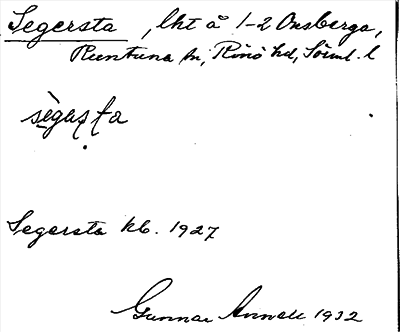 Segersta, lht å 1-2 Onsberga,
Runtuna sn, Rönö hd, Söml. l
sègaṣṭa
Segersta kb. 1927
Gunnar 1932